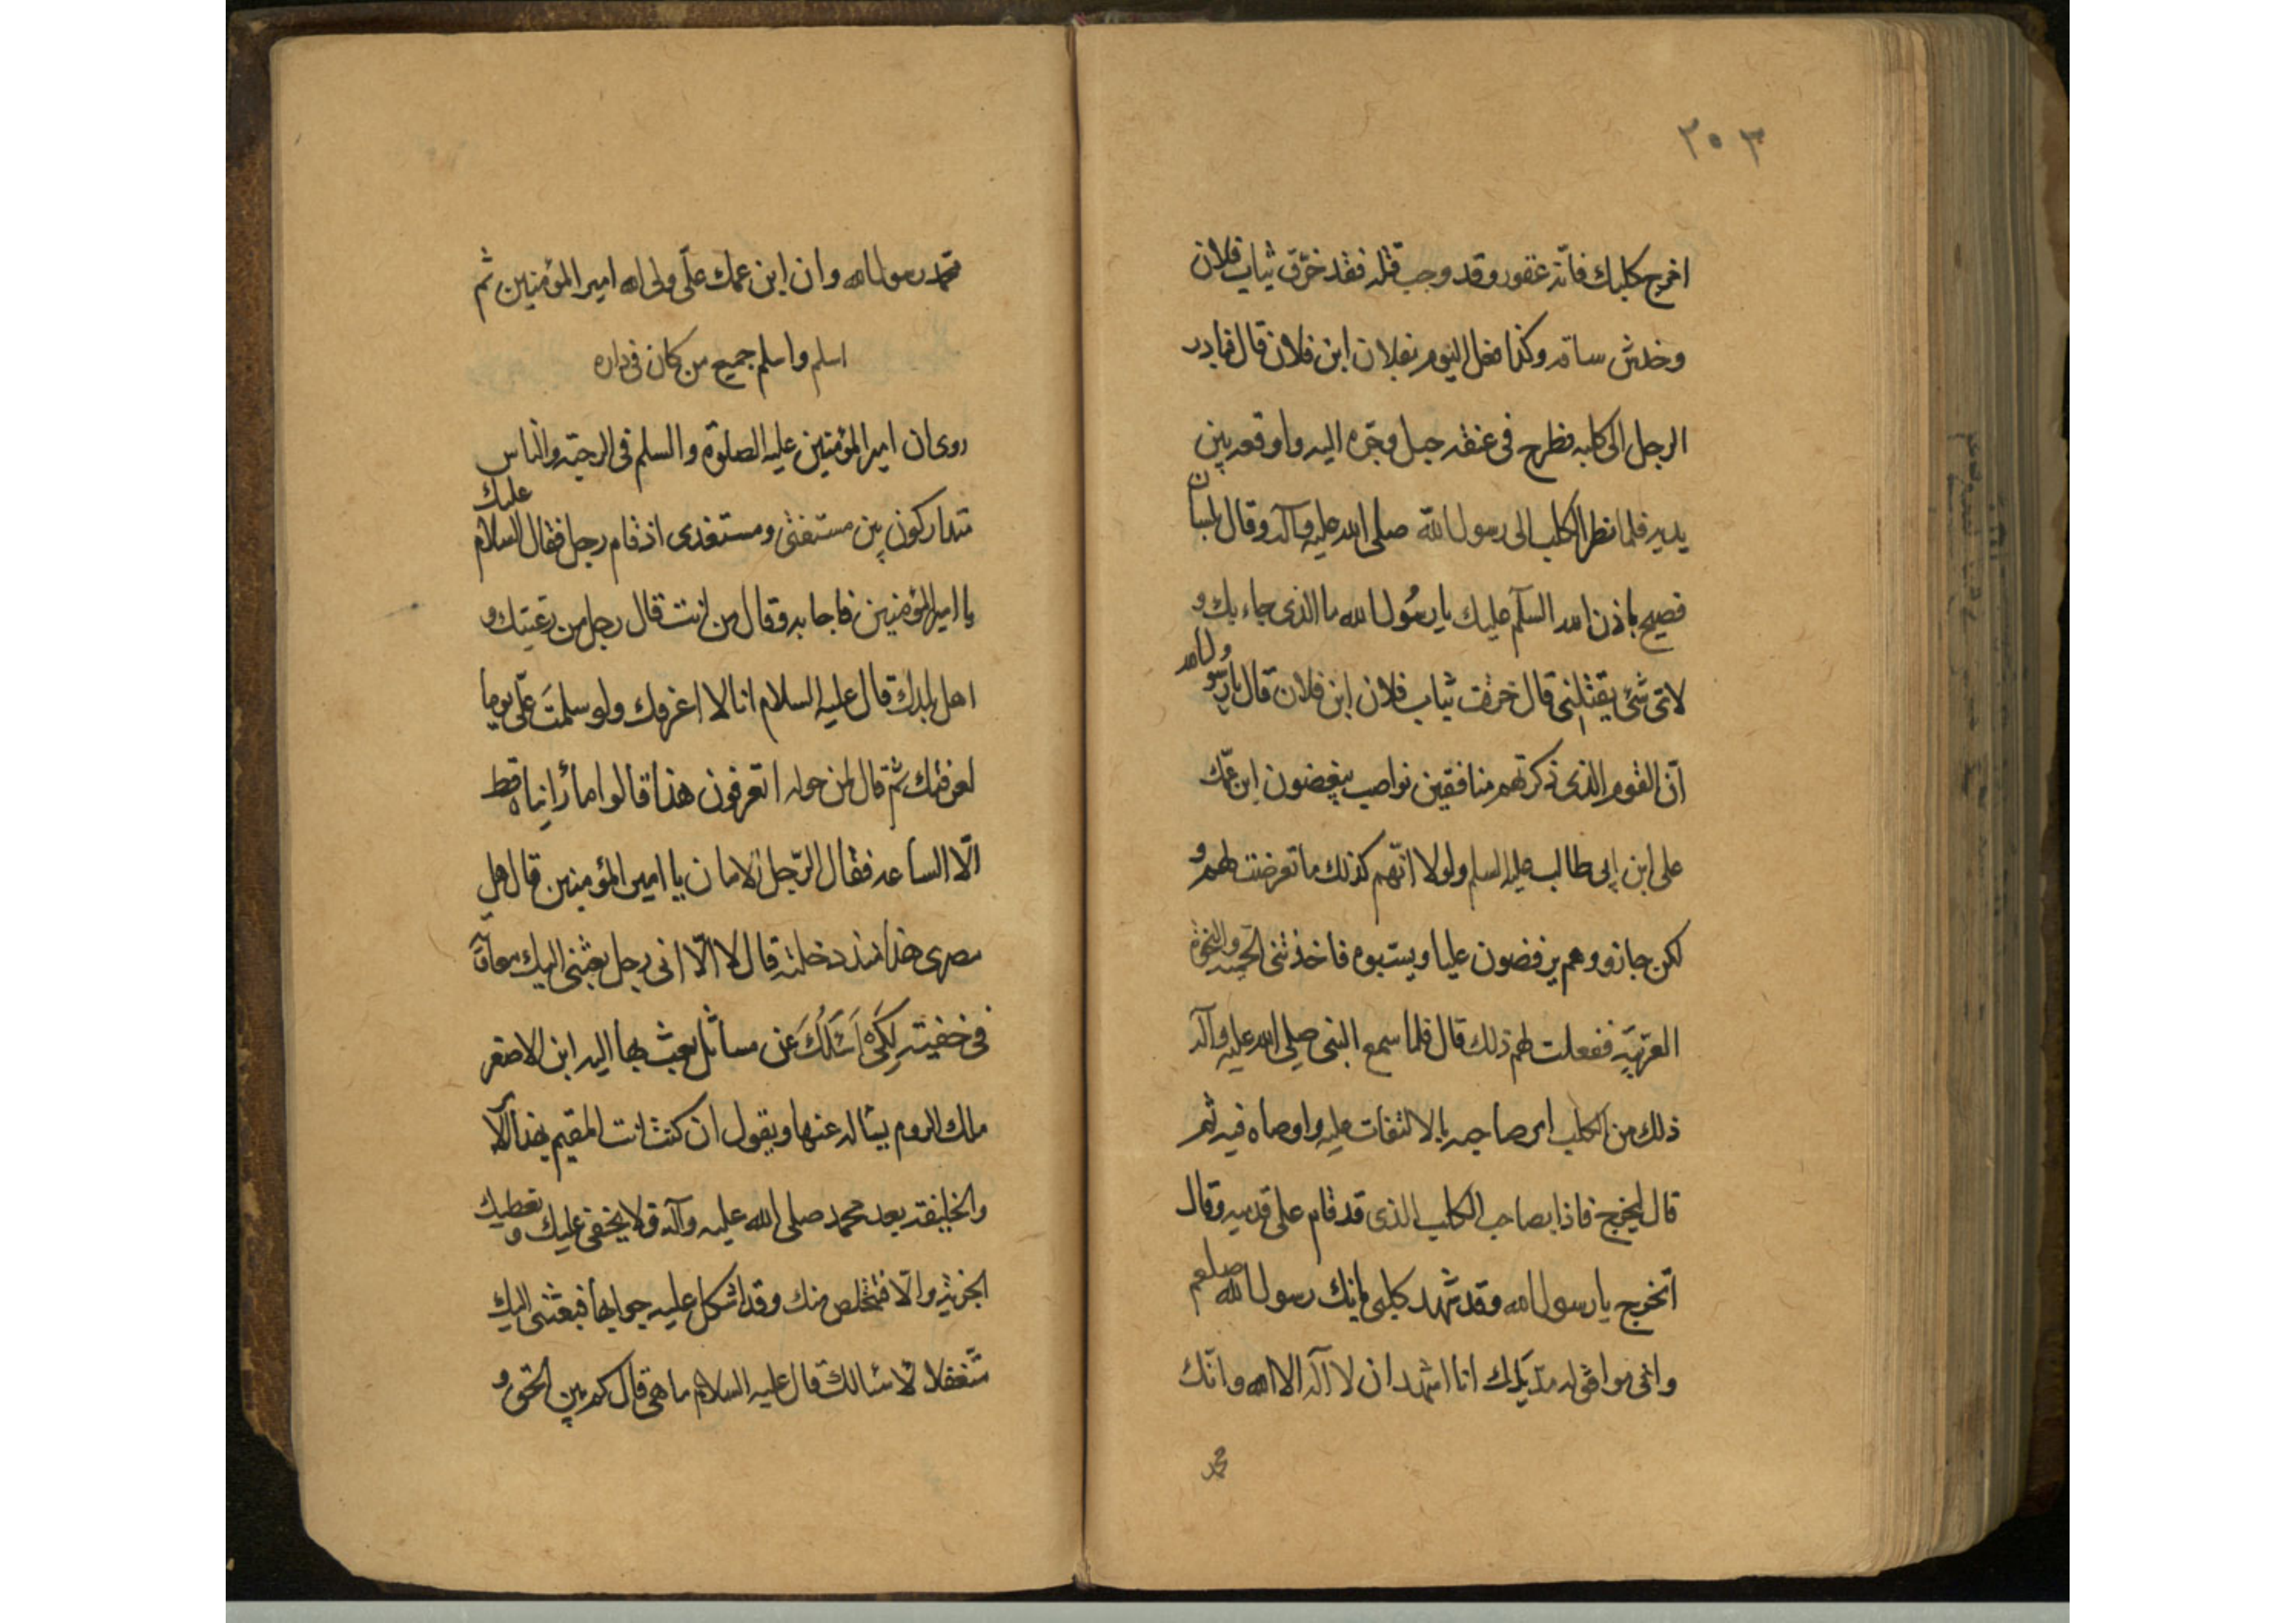 ٣٠٣
اخرج كلبك فانه عقور وقد وجب قتله فقد خرّق ثياب فلان
وخدش ساقه وكذا فعل اليوم بفلان ابن فلان قال فبادر
الرجل الى كلبه فطرح فى عنقه حبل وجرّه اليه واوقعه بين
يديه فلما نظر الكلب الى رسول الله صلى الله عليه وآله وقال بلسان
فصيح باذن الله السلم عليك يا رسُول الله ما الذى جاء بك و
لاىّ شىٔ يقتلنى قال خرقت ثياب فلان ابن فلان قال يا رسول الله
انّ القوم الذى ذكرتهم منافقين نواصب يبغضون ابن عمّك
على ابن ابى طالب عليه السلم ولولا انّهم كذلك ما تعرضت لهم و
لكن جازو وهم يرفضون عليا ويسبوه فاخذتنى الحميه والنخوة
العربيّه ففعلت لهم ذلك قال فلما سمع النبى صلى الله عليه وآله
ذلك من الكلب امر صاحبه بالالتفات عليه واوصاه فيه ثم
قال ليخرج فاذا بصاحب الكلب الذى قد قام على قدميه وقال
اتخرج يا رسول الله وقد شهد كلبى بانك رسول الله صلعم
وانى اشهد ان لا آله الا الله وانّك
محمد
محمد رسول الله وان ابن عمك علىّ ولى الله امير المؤمنين ثم
اسلم واسلم جميع من كان فى داره
روى ان امير المؤمنين عليه الصلوة والسلم فى الرحبه والناس
متداركون بين مستفتى ومستغدى اذ قام رجل فقال السلام عليك
يا امير المؤمنين فاجابه وقال من انت قال رجل من رعيتك و
اهل بلدك قال عليه السلام انا لا اعرفك ولو سلمتَ علّى يوما
لعرفتك ثم قال لمن حوله اتعرفون هذا قالوا ما رأيناه قط
الّا الساعه فقال الرّجل الامان يا امير المؤمنين قال هل
مصرى هذا منذ دخلته قال لا الّا انى رجل بعثنى اليك معاويه
فى خفيته لكى اَسْئلُكَ عن مسائل بعث بها اليه ابن الاصفر
ملك الروم يسٔاله عنها ويقول ان كنت انت المقيم بهذا الامر
والخليفه بعد محمد صلى الله عليه وآله ولا يخفى عليك ونعطيك
الجزيه والّا فتخلص منك وقد اشكل عليه جوابها فبعثنى اليك
متغفلا لاسٔالك قال عليه السلام ما هى قال كم بين الحق و